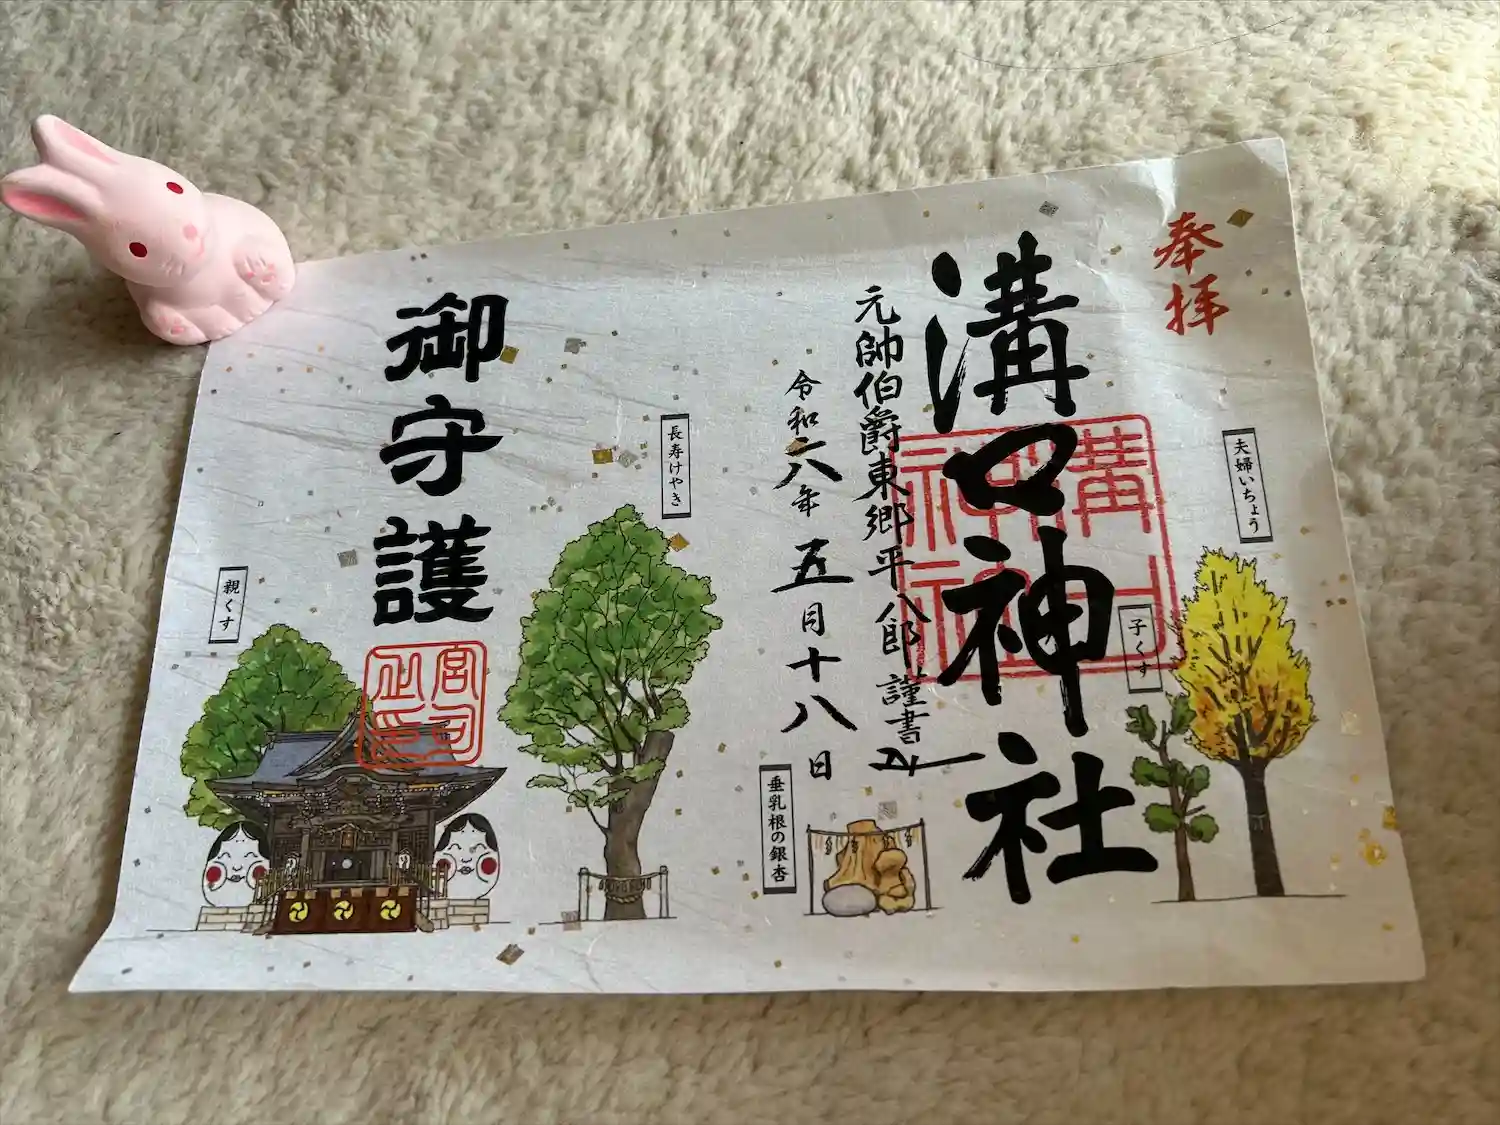 奉拝
夫婦いちょう
子くす
溝口神社
溝口神社
元帥伯爵東郷平八郎謹書
令和六年五月十八日
垂乳根の銀杏
長寿けやき
御守護
宮司之印
親くす